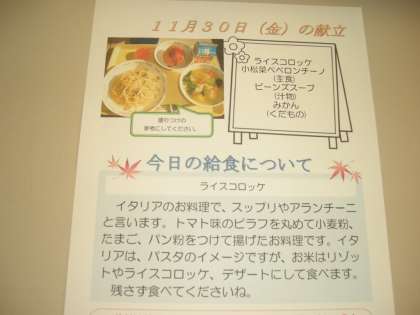 11月30日(金)の献立
ライスコロッケ
小松菜ペペロンチーノ
(主食)
ビーンズスープ
(汁物)
みかん
(くだもの)
盛りつけの
参考にしてください。
今日の給食について
ライスコロッケ
イタリアのお料理で、スップリやアランチーニ
と言います。トマト味のピラフを丸めて小麦粉、
たまご、パン粉をつけて揚げたお料理です。イタ
リアは、パスタのイメージですが、お米はリゾッ
トやライスコロッケ、デザートにして食べます。
残さず食べてくださいね。